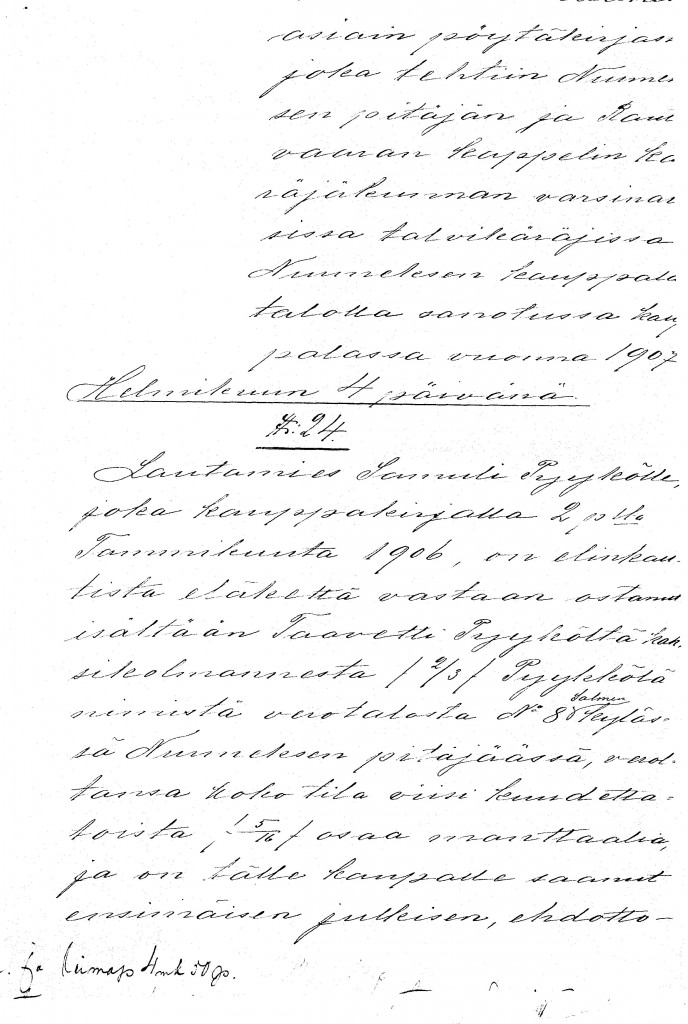 asiain pöytäkirjas
joka tehtiin Nurme
sen pitäjän ja Rau
vaaran kappelin kä
räjäkunnan varsinai
sissa talvikäräjissä
Nurmeksen kauppala
talolla sanotussa kau
palassa vuonna 1907
Helmikuun 4 päivänä.
N:24.
Lautamies Samuli Pyykölle,
joka kauppakirjalla 2 plla
Tammikuuta 1906, on elinkau-
tista eläkettä vastaan ostanut
isältään Taavetti Pyyköltä kak-
sikolmannesta /2/3/ Pyykkölä
nimistä verotalosta No 8 Salmen kyläs-
sä Nurmeksen pitäjäässä, verol-
tansa koko tila viisi kuudetta-
toista, /5/16/ osaa manttaalia,
ja on tälle kaupalle saanut
ensimäisen julkisen, ehdotto-
ja 4 mk 50 p.